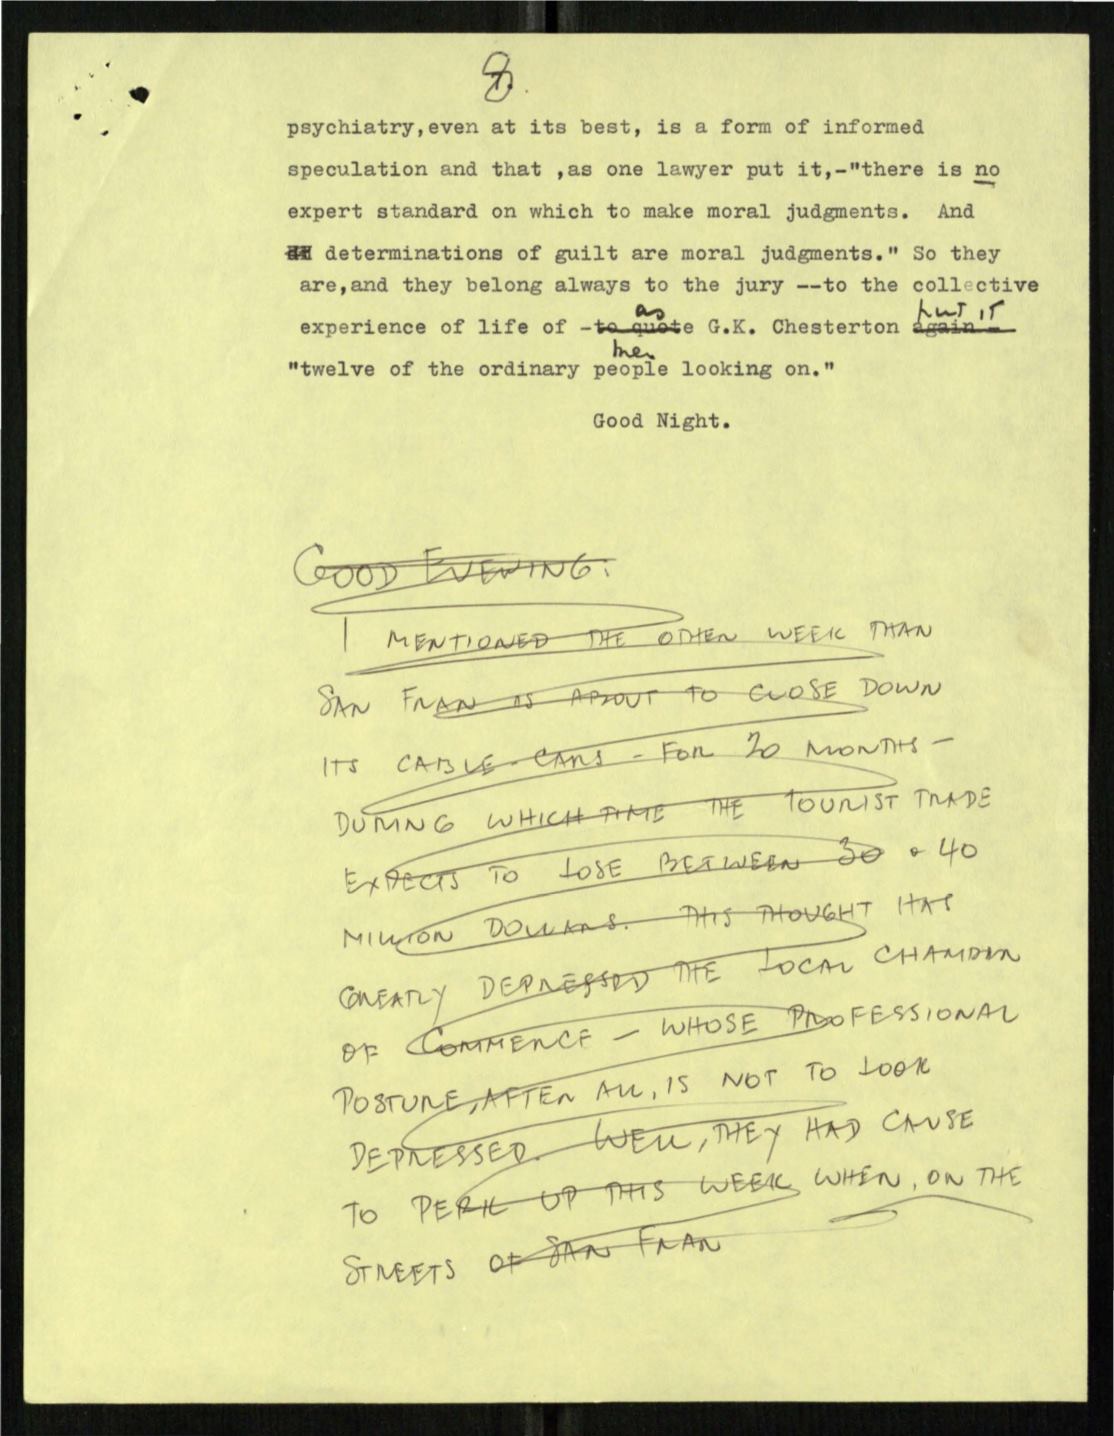 8.
psychiatry,even at its best, is a form of informed
speculation and that ,as one lawyer put it,-"there is no
expert standard on which to make moral judgments. And
determinations of guilt are moral judgments." So they
are,and they belong always to the jury --to the collective
as put it
experience of life of -to quote G.K. Chesterton again -
men
"twelve of the ordinary people looking on."
Good Night.
GOOD EVENING:
I MENTIONED THE OTHER WEEK THAN
SAN FRAN IS ABOUT TO CLOSE DOWN
ITS CABLE-CARS - FOR 20 MONTHS -
DURING WHICH TIME THE TOURIST TRADE
EXPECTS TO LOSE BETWEEN 30 & 40
MILLION DOLLARS. THIS THOUGHT HAS
GREATLY DEPRESSED THE LOCAL CHAMBER
OF COMMERCE - WHOSE PROFESSIONAL
POSTURE, AFTER ALL, IS NOT TO LOOK
DEPRESSED. WELL, THEY HAD CAUSE
TO PERK UP THIS WEEK WHEN, ON THE
STREETS OF SAN FRAN